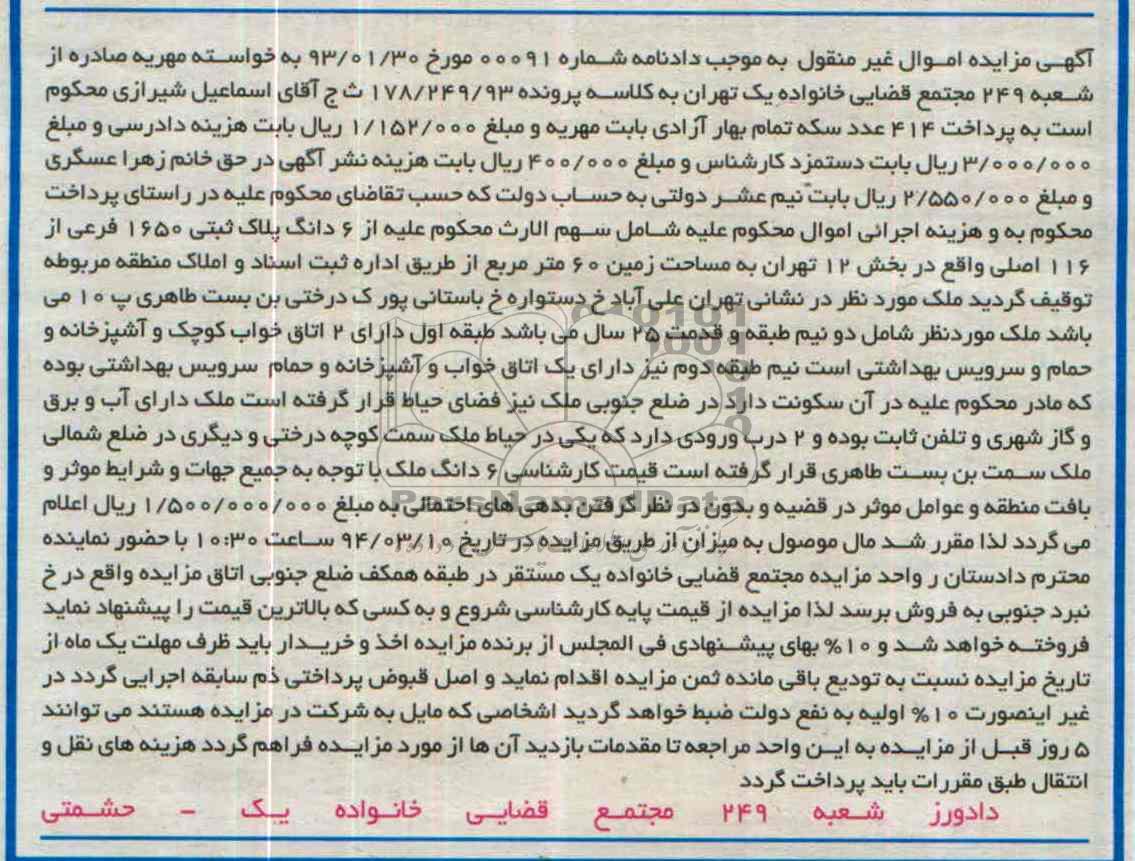 آگهی مزایده اموال غیر منقول به موجب دادنامه شماره ۰۰۰۹۱ مورخ ۹۳/۰۱/۳۰ به خواسته مهریه صادره از
شعبه ۲۴۹ مجتمع قضایی خانواده یک تهران به کلاسه پرونده ۱۷۸/۲۴۹/۹۳ ث ج آقای اسماعیل شیرازی محکوم
است به پرداخت ۴۱۴ عدد سکه تمام بهار آزادی بابت مهریه و مبلغ ۱/۱۵۲/۰۰۰ ریال بابت هزینه دادرسی و مبلغ
۳/۰۰۰/۰۰۰ ریال بابت دستمزد کارشناس و مبلغ ۴۰۰/۰۰۰ ریال بابت هزینه نشر آگهی در حق خانم زهرا عسگری
و مبلغ ۲/۵۵۰/۰۰۰ ریال بابت نیم عشر دولتی به حساب دولت که حسب تقاضای محکوم علیه در راستای پرداخت
محکوم به و هزینه اجرائی اموال محکوم علیه شامل سهم الارث محکوم علیه از ۶ دانگ پلاک ثبتی ۱۶۵۰ فرعی از
۱۱۶ اصلی واقع در بخش ۱۲ تهران به مساحت زمین ۶۰ متر مربع از طریق اداره ثبت اسناد و املاک منطقه مربوطه
توقیف گردید ملک مورد نظر در نشانی تهران علی آباد خ دستواره خ باستانی پور ک درختی بن بست طاهری پ ۱۰ می
باشد ملک موردنظر شامل دو نیم طبقه و قدمت ۲۵ سال می باشد طبقه اول دارای ۲ اتاق خواب کوچک و آشپزخانه و
حمام و سرویس بهداشتی است نیم طبقه دوم نیز دارای یک اتاق خواب و آشپزخانه و حمام سرویس بهداشتی بوده
که مادر محکوم علیه در آن سکونت دارد در ضلع جنوبی ملک نیز فضای حیاط قرار گرفته است ملک دارای آب و برق
و گاز شهری و تلفن ثابت بوده و ۲ درب ورودی دارد که یکی در حیاط ملک سمت کوچه درختی و دیگری در ضلع شمالی
ملک سمت بن بست طاهری قرار گرفته است قیمت کارشناسی ۶ دانگ ملک با توجه به جمیع جهات و شرایط موثر و
بافت منطقه و عوامل موثر در قضیه و بدون در نظر گرفتن بدهی های احتمالی به مبلغ ۱/۵۰۰/۰۰۰/۰۰۰ ریال اعلام
می گردد لذا مقرر شد مال موصول به میزان از طریق مزایده در تاریخ ۹۴/۰۳/۱۰ ساعت ۱۰:۳۰ با حضور نماینده
محترم دادستان ر واحد مزایده مجتمع قضایی خانواده یک مستقر در طبقه همکف ضلع جنوبی اتاق مزایده واقع در خ
نبرد جنوبی به فروش برسد لذا مزایده از قیمت پایه کارشناسی شروع و به کسی که بالاترین قیمت را پیشنهاد نماید
فروخته خواهد شد و ۱۰% بهای پیشنهادی فی المجلس از برنده مزایده اخذ و خریدار باید ظرف مهلت یک ماه از
تاریخ مزایده نسبت به تودیع باقی مانده ثمن مزایده اقدام نماید و اصل قبوض پرداختی ذم سابقه اجرایی گردد در
غیر اینصورت ۱۰% اولیه به نفع دولت ضبط خواهد گردید اشخاصی که مایل به شرکت در مزایده هستند می توانند
۵ روز قبل از مزایده به این واحد مراجعه تا مقدمات بازدید آن ها از مورد مزایده فراهم گردد هزینه های نقل و
انتقال طبق مقررات باید پرداخت گردد
دادورز شعبه ۲۴۹ مجتمع قضایی خانواده یک - حشمتی
ParsNamadData